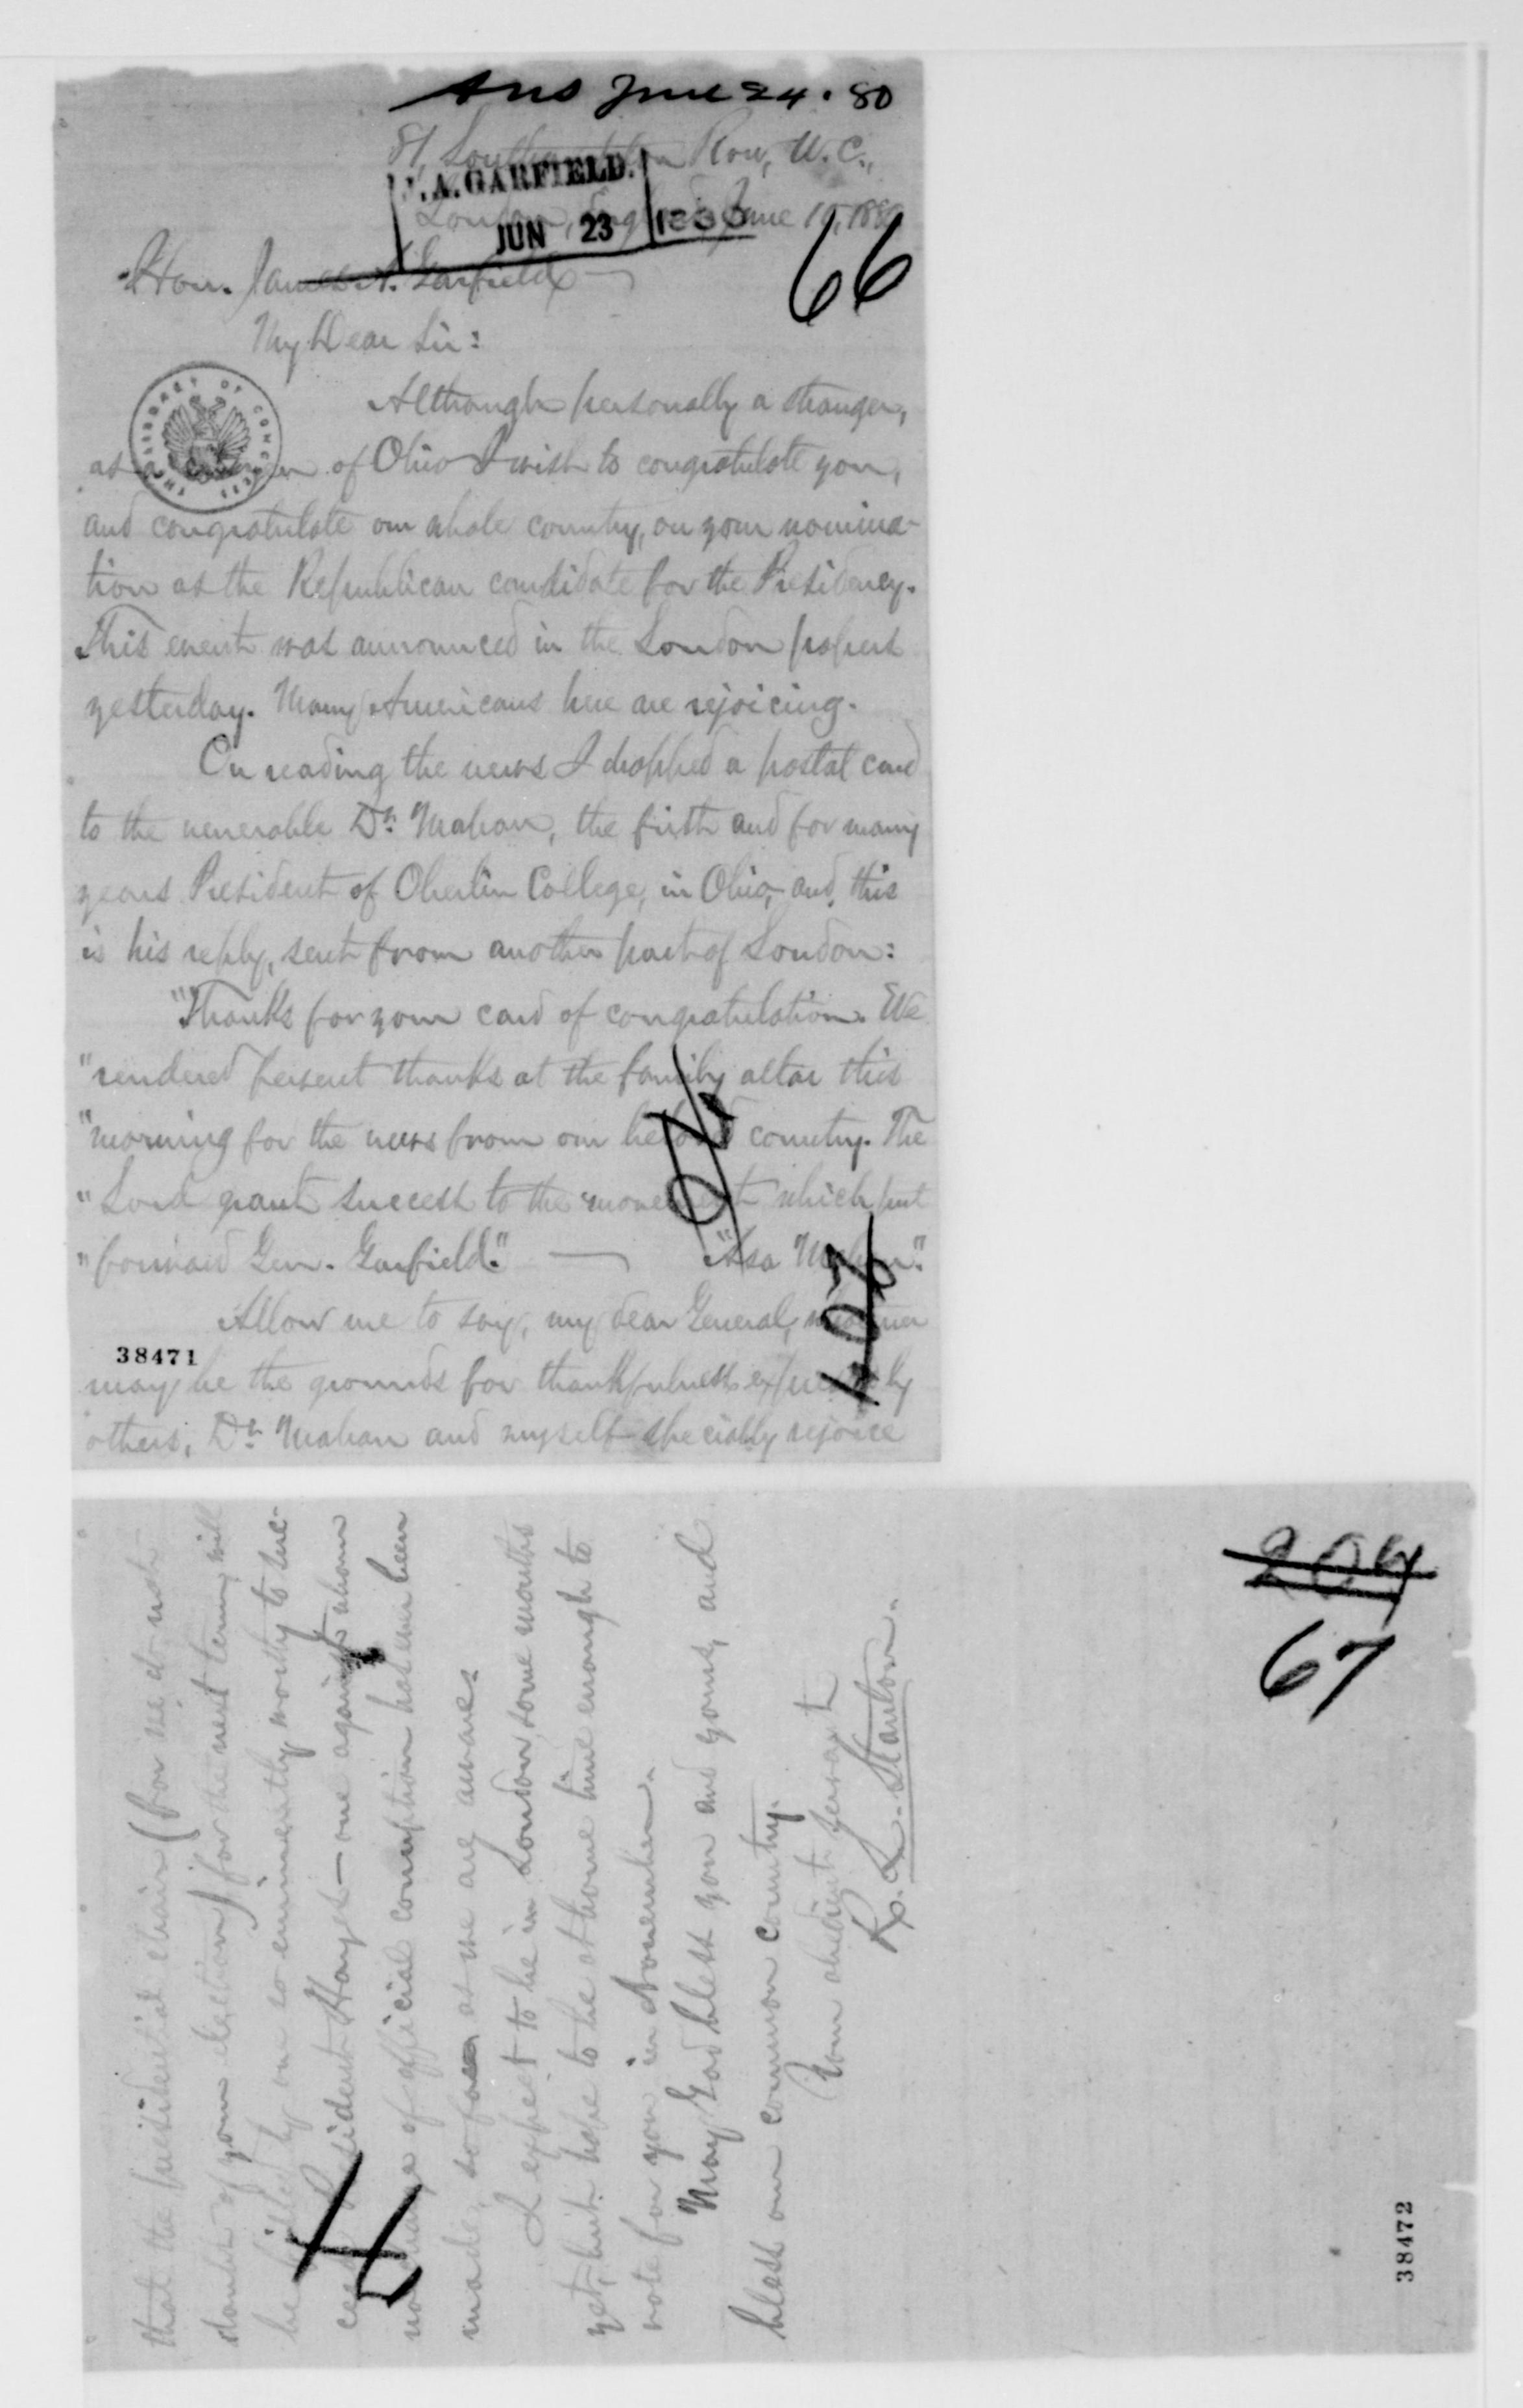 Ans June 24. 80
81, Southampton Row, W. C.,
London, England, June 10, 1880
J. A. GARFIELD.
JUN 23 1880
66
Hon. James A. Garfield —
My Dear Sir:
THE LIBRARY OF CONGRESS
Although personally a stranger,
as a citizen of Ohio I wish to congratulate you,
and congratulate our whole country, on your nomina-
tion as the Republican candidate for the Presidency.
This event was announced in the London papers
yesterday. Many Americans here are rejoicing.
On reading the news I dropped a postal card
to the venerable Dr. Mahan, the first and for many
years President of Oberlin College, in Ohio, and this
is his reply, sent from another part of London:
"Thanks for your card of congratulation. We
"rendered fervent thanks at the family altar this
"morning for the news from our beloved country. The
"Lord grant success to the movement which put
"forward Gen. Garfield." — "Asa Mahan."
Allow me to say, my dear General, whatever
38471
may be the grounds for thankfulness expressed by
others, Dr. Mahan and myself specially rejoice
that the presidential chair (for we do not
doubt of your election) for the next term, will
be filled by one so eminently worthy to suc-
ceed President Hayes — one against whom
no charge of official corruption has ever been
made, so far as we are aware.
I expect to be in London some months
yet, but hope to be at home time enough to
vote for you in November.
May God bless you and yours, and
bless our common country.
Your obedient servant
R. L. Stanton.
204
67
38472